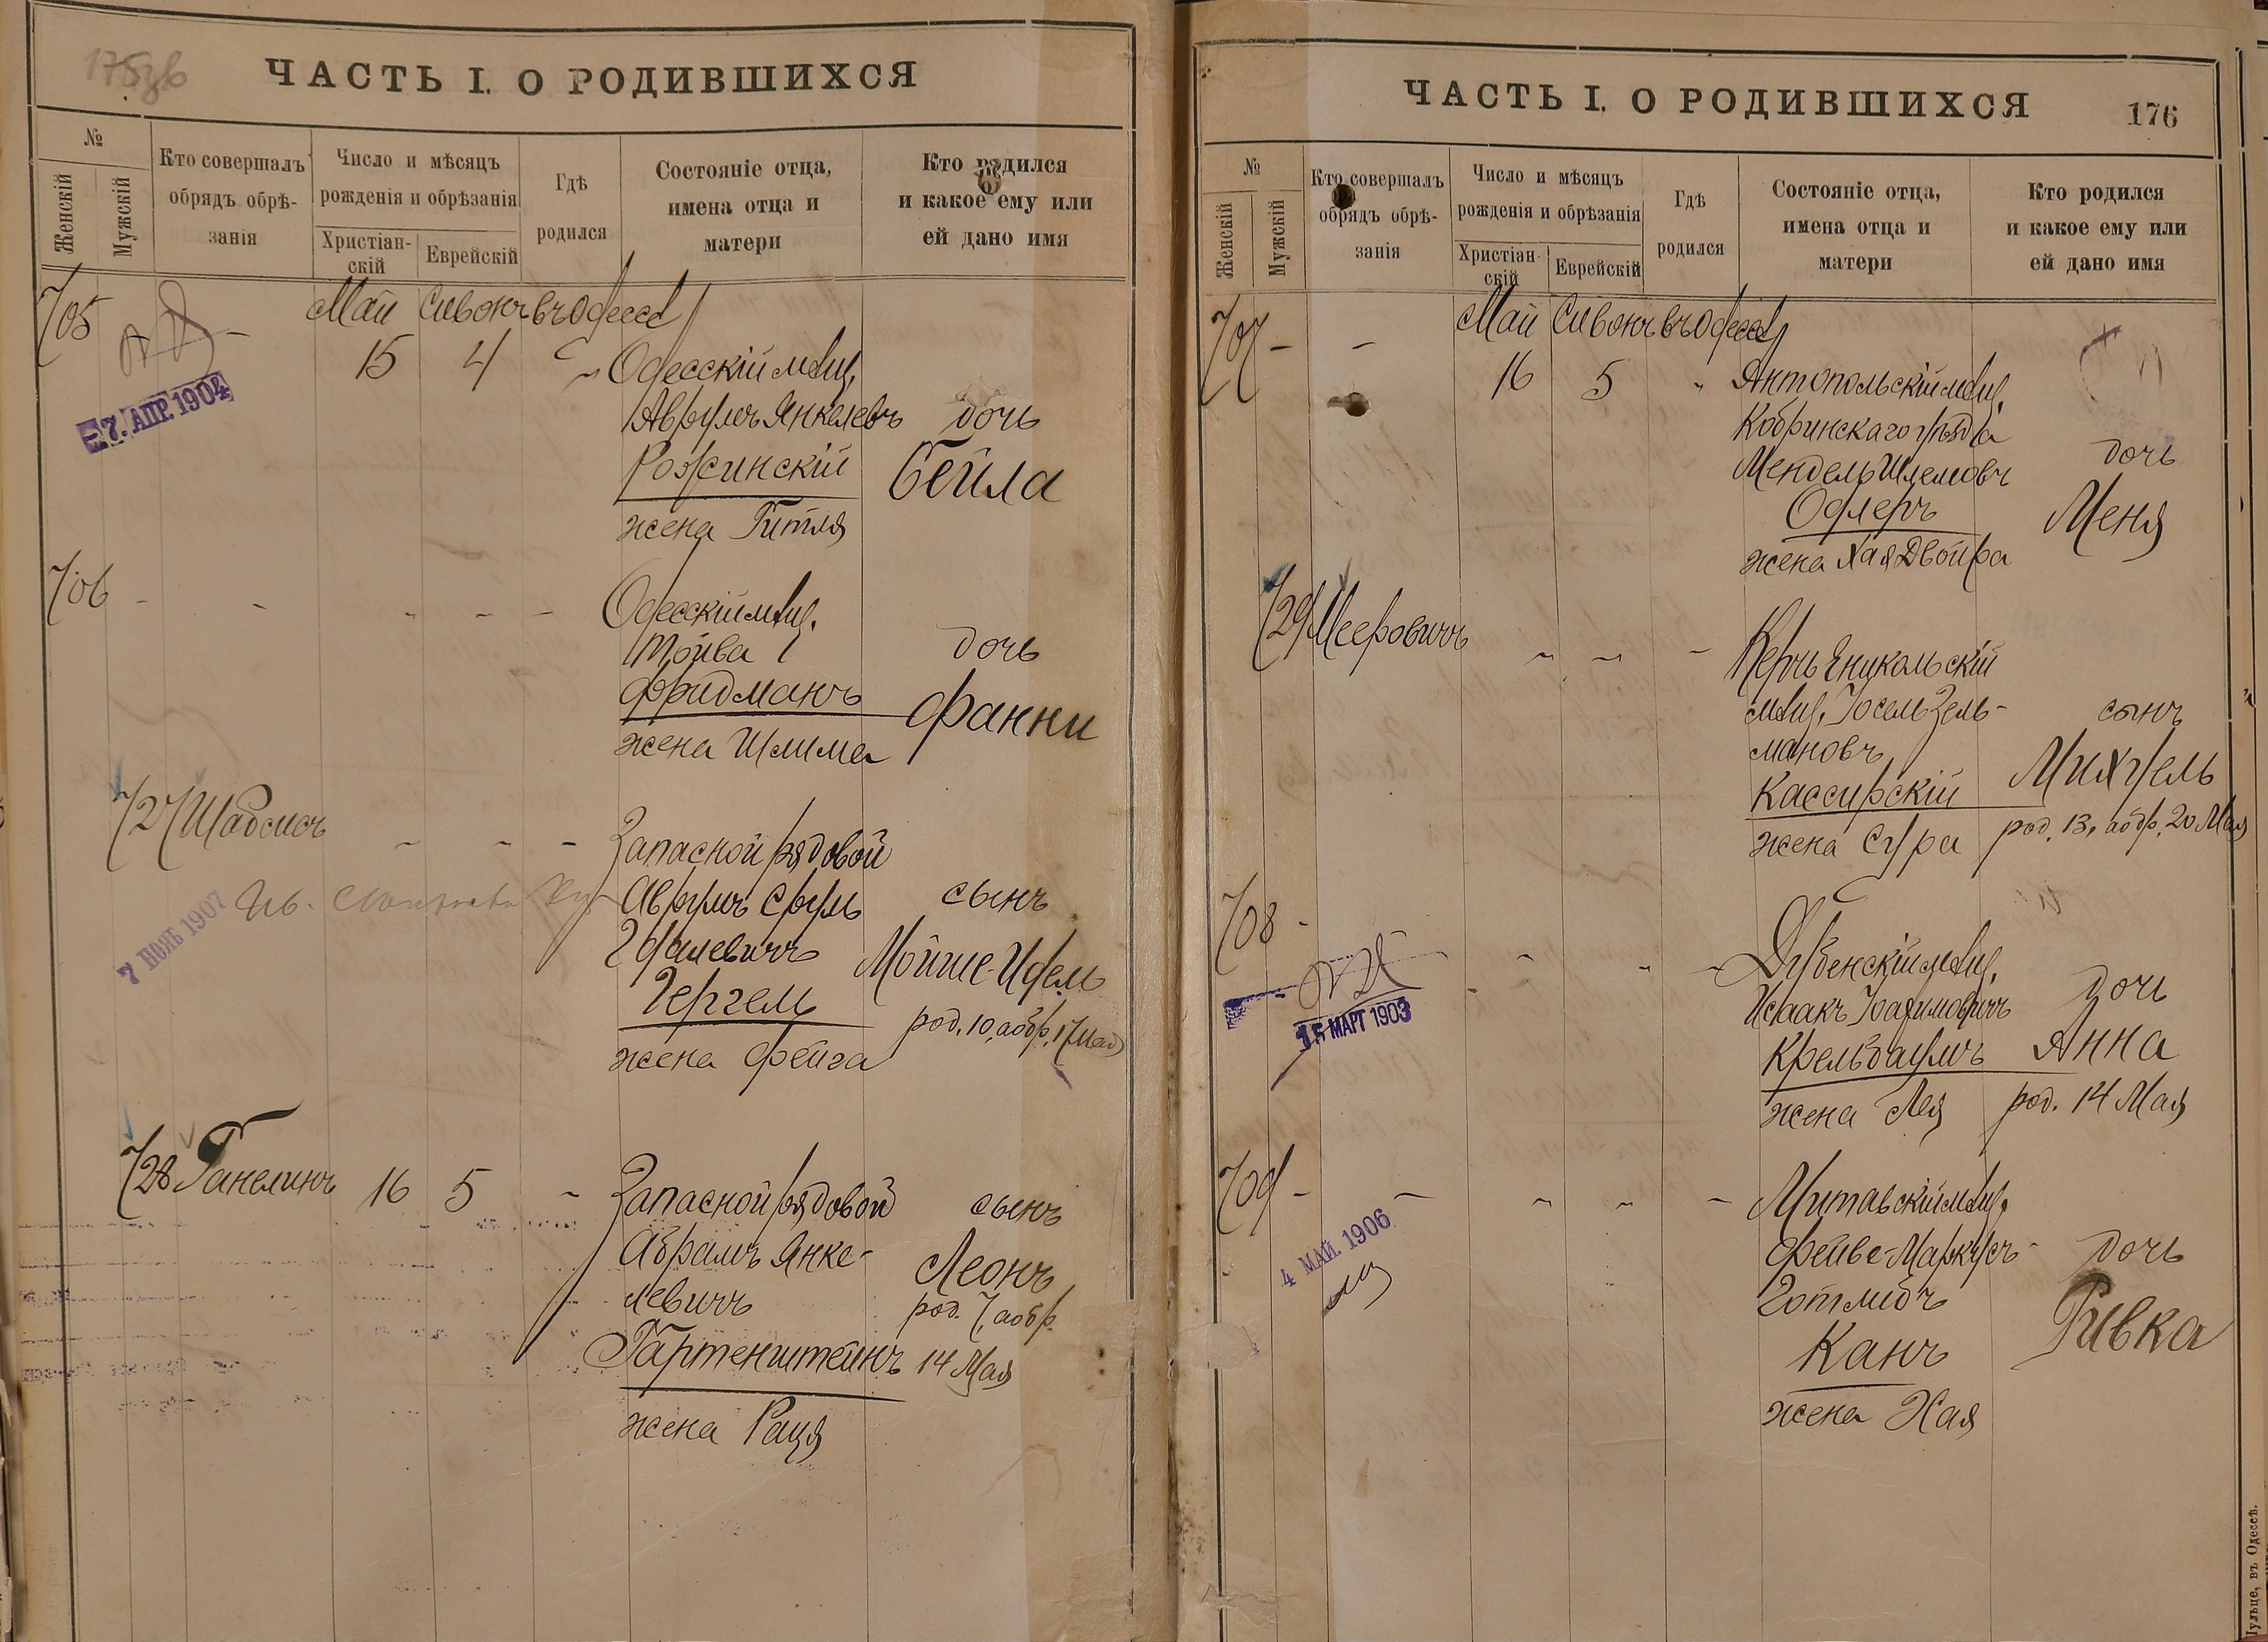 175зв
ЧАСТЬ I. О РОДИВШИХСЯ
№
Женскій
Мужскій
Кто совершалъ
обрядъ обрѣ-
занія
Число и мѣсяцъ
рожденія и обрѣзанія
Христіан-
скій
Еврейскій
Гдѣ
родился
Состояніе отца,
имена отца и
матери
Кто родился
и какое ему или
ей дано имя
705 Май Сивонъ въ Одессѣ
15 4 Одесскій мѣщ.
7. АПР. 1904
Аврумъ Янкелевъ дочь
Рожинскій Бейла
жена Гитля
706 Одесскій мѣщ.
Тойва дочь
Фридманъ Фанни
жена Шлима
727 Шабсисъ
Запасной рядовой
7 НОЯБ 1907
Аврумъ Сруль сынъ
Мойше-Идель
Гергель
род. 10, а обр. 17 Мая
жена Фейга
728 Ганелинъ 16 5 Запасной рядовой сынъ
Абрамъ Янке-
левичъ Леонъ
род. 7, а обр.
Гартенштейнъ 14 Мая
жена Рация
ЧАСТЬ I. О РОДИВШИХСЯ
176
№
Женскій
Мужскій
Кто совершалъ
обрядъ обрѣ-
занія
Число и мѣсяцъ
рожденія и обрѣзанія
Христіан-
скій
Еврейскій
Гдѣ
родился
Состояніе отца,
имена отца и
матери
Кто родился
и какое ему или
ей дано имя
707 Май Сивонъ въ Одессѣ
16 5 Антопольскій мѣщ.
Кобринскаго уѣзда
Мендель Шлемовъ дочь
Одлеръ Меня
жена Хая Двойра
729 Мееровичъ
Керчь Еникольскій
мѣщ. Іосель Зель- сынъ
мановъ
Кассирскій Михуель
род. 13, а обр. 20 Мая
жена Сура
708
Дубенскій мѣщ.
Исаакъ Іоахимовичъ дочь
МАРТ 1903
Крельбаумъ Анна
жена Лея род. 14 Мая
709 Митавскій мѣщ.
4 МАЙ. 1906
Фейве-Маркусъ- дочь
Готлибъ
Канъ Ривка
жена Хая
ульце, въ Одессѣ.